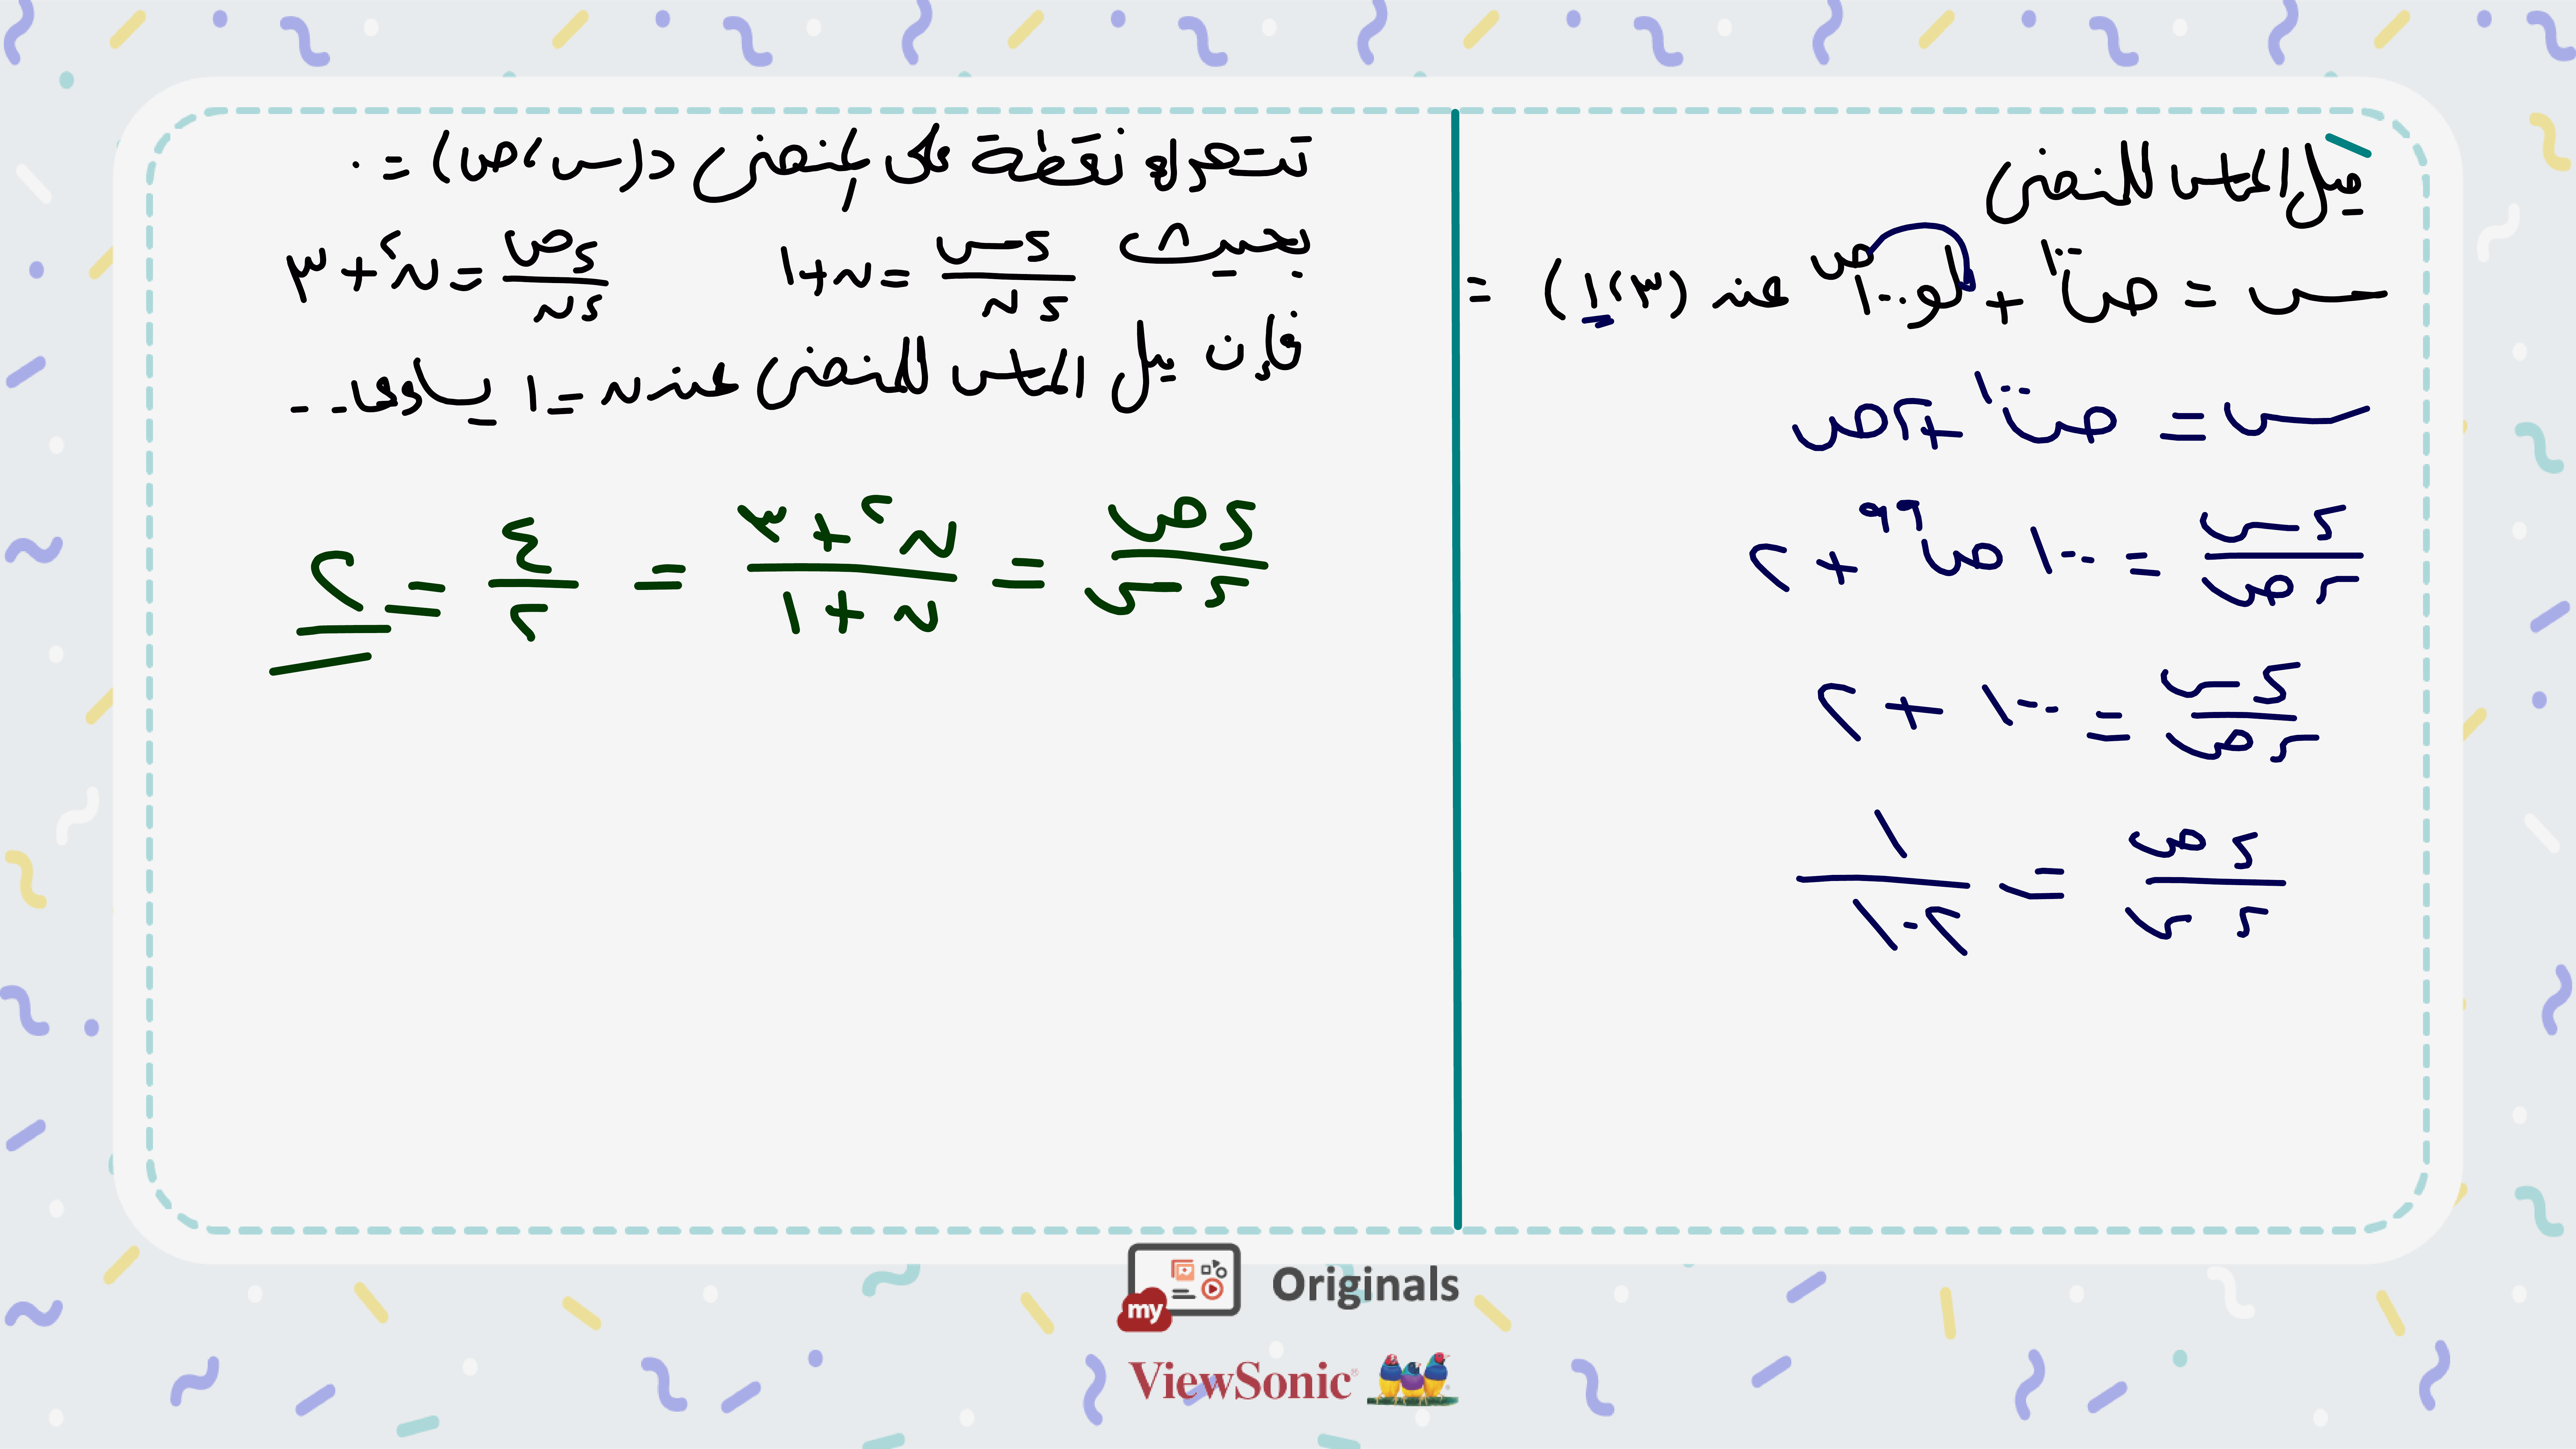 ميل المماس للمنحنى
س = ص^١٠٠ + لو ١٠٠^ص عند (٣،١) =
س = ص^١٠٠ + ٢ص
دس/دص = ١٠٠ ص^٩٩ + ٢
دس/دص = ١٠٠ + ٢
دص/دس = ١/١٠٢
تتحرك نقطة على المنحنى د(س،ص) = ٠
بحيث دس/دن = ن+١ دص/دن = ن^٢+٣
فإن ميل المماس للمنحنى عند ن = ١ يساوى ...
دص/دس = ن^٢+٣/ن+١ = ٤/٢ = ٢
my Originals
ViewSonic